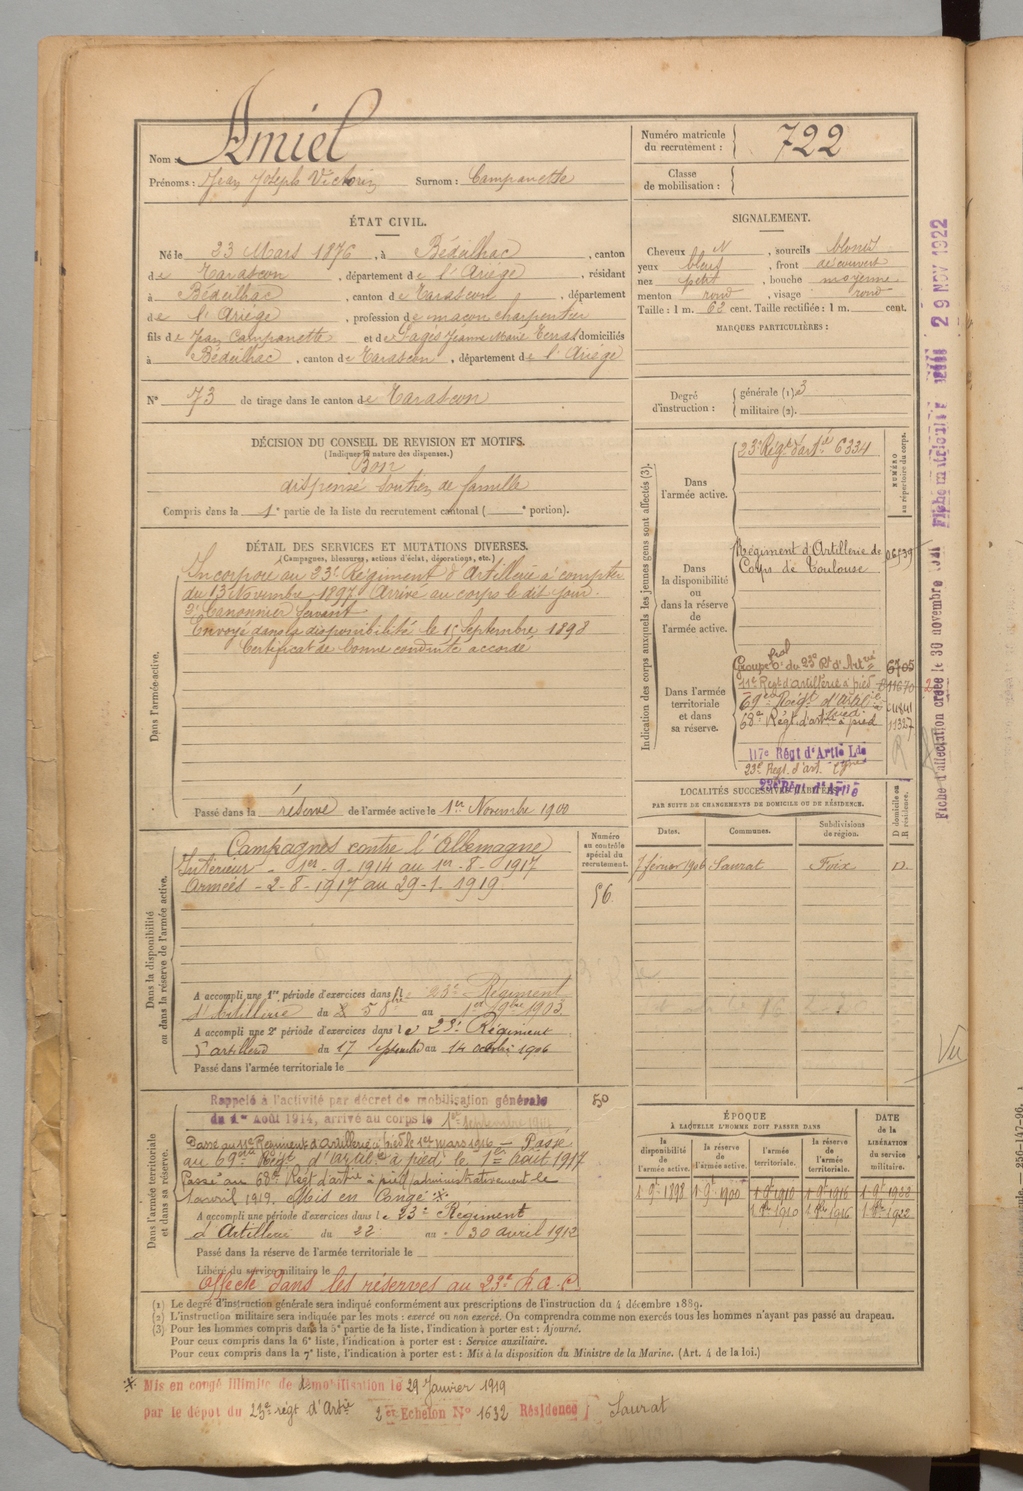 Nom : Amiel
Prénoms : Jean Joseph Victorin Surnom : Campanette
ÉTAT CIVIL.
Né le 23 Mars 1876, à Bédeilhac, canton
de Tarascon, département de l'Ariège, résidant
à Bédeilhac, canton de Tarascon, département
de l'Ariège, profession de maçon charpentier
fils de Jean Campanette et de Pagès Jeanne Marie domiciliés
à Bédeilhac, canton de Tarascon, département de l'Ariège
N° 73 de tirage dans le canton de Tarascon
DÉCISION DU CONSEIL DE REVISION ET MOTIFS.
(Indiquer la nature des dispenses.)
Bon
dispensé soutien de famille
Compris dans la 1e partie de la liste du recrutement cantonal ( e portion).
DÉTAIL DES SERVICES ET MUTATIONS DIVERSES.
(Campagnes, blessures, actions d'éclat, décorations, etc.)
Dans l'armée active.
Incorporé au 23e Régiment d'Artillerie à compter
du 13 Novembre 1897. Arrivé au corps le dit jour.
2e Canonnier servant
Envoyé dans la disponibilité le 1er Septembre 1898
Certificat de bonne conduite accordé
Passé dans la réserve de l'armée active le 1er Novembre 1900
Dans la disponibilité
ou dans la réserve de l'armée active.
Campagnes contre l'Allemagne
Intérieur - 1er - 9 - 1914 au 1er - 8 - 1917
Armées - 2 - 8 - 1917 au 29 - 1 - 1919
Numéro
au contrôle
spécial du
recrutement.
56
A accompli une 1re période d'exercices dans le 23e Régiment
d'Artillerie du au 1er 9bre 1903
A accompli une 2e période d'exercices dans le 23e Régiment
d'artillerie du 17 septembre au 14 octobre 1906
Passé dans l'armée territoriale le
Dans l'armée territoriale
et dans sa réserve.
Rappelé à l'activité par décret de mobilisation générale
du 1er Août 1914, arrivé au corps le 1er septembre 1914
50
Passé au 11e Régiment d'Artillerie à pied le 1er mars 1916 - Passé
au 69ème Régt d'artilie à pied le 1er Août 1917
Passé au 68e Régt d'artie à pied administrativement le
1 avril 1919. Mis en Congé *
A accompli une période d'exercices dans le 23e Régiment
d'Artillerie du 22 au 30 avril 1912
Passé dans la réserve de l'armée territoriale le
Libéré du service militaire le
affecté dans les réserves au 23e R.A.C.
Numéro matricule
du recrutement : 722
Classe
de mobilisation :
SIGNALEMENT.
Cheveux N, sourcils blonds
yeux bleus, front découvert
nez petit, bouche moyenne
menton rond, visage rond
Taille : 1 m. 62 cent. Taille rectifiée : 1 m. cent.
MARQUES PARTICULIÈRES :
Degré
d'instruction :
générale (1) 3
militaire (2).
Indication des corps auxquels les jeunes gens sont affectés (3).
NUMÉRO
au répertoire du corps.
Dans
l'armée active.
23e Régt d'artie 6334
Dans
la disponibilité
ou
dans la réserve
de
l'armée active.
Régiment d'Artillerie de
Corps de Toulouse
Dans l'armée
territoriale
et dans
sa réserve.
Groupe du 23e Rt d'Artie 6705
11e Régt d'artillerie à pied 11670
69ème Régt d'artilie
68e Régt. d'art. à pied 11327
117e Régt d'Artie Lde
23e Régt. d'art.
23e Régt d'Artie
LOCALITÉS SUCCESSIVES HABITÉES
PAR SUITE DE CHANGEMENTS DE DOMICILE OU DE RÉSIDENCE.
Dates. Communes. Subdivisions de région. D domicile ou R résidence.
7 février 1906 Saurat Foix D.
ÉPOQUE
À LAQUELLE L'HOMME DOIT PASSER DANS
DATE
de la
LIBÉRATION
du service
militaire.
la disponibilité de l'armée active. la réserve de l'armée active. l'armée territoriale. la réserve de l'armée territoriale.
1 9e 1898 1 9e 1900 1 9e 1910 1 9e 1916
1 8bre 1910 1 8bre 1916 1 8bre 1922
(1) Le degré d'instruction générale sera indiqué conformément aux prescriptions de l'instruction du 4 décembre 1889.
(2) L'instruction militaire sera indiquée par les mots : exercé ou non exercé. On comprendra comme non exercés tous les hommes n'ayant pas passé au drapeau.
(3) Pour les hommes compris dans la 5e partie de la liste, l'indication à porter est : Ajourné.
Pour ceux compris dans la 6e liste, l'indication à porter est : Service auxiliaire.
Pour ceux compris dans la 7e liste, l'indication à porter est : Mis à la disposition du Ministre de la Marine. (Art. 4 de la loi.)
* Mis en congé illimité de démobilisation le 29 Janvier 1919
par le dépôt du 23e régt d'Artie 2er Echelon N° 1632 Résidence Saurat
29 NOV 1922
Fiche d'affectation créée le 30 novembre
Vu
256-147-96.